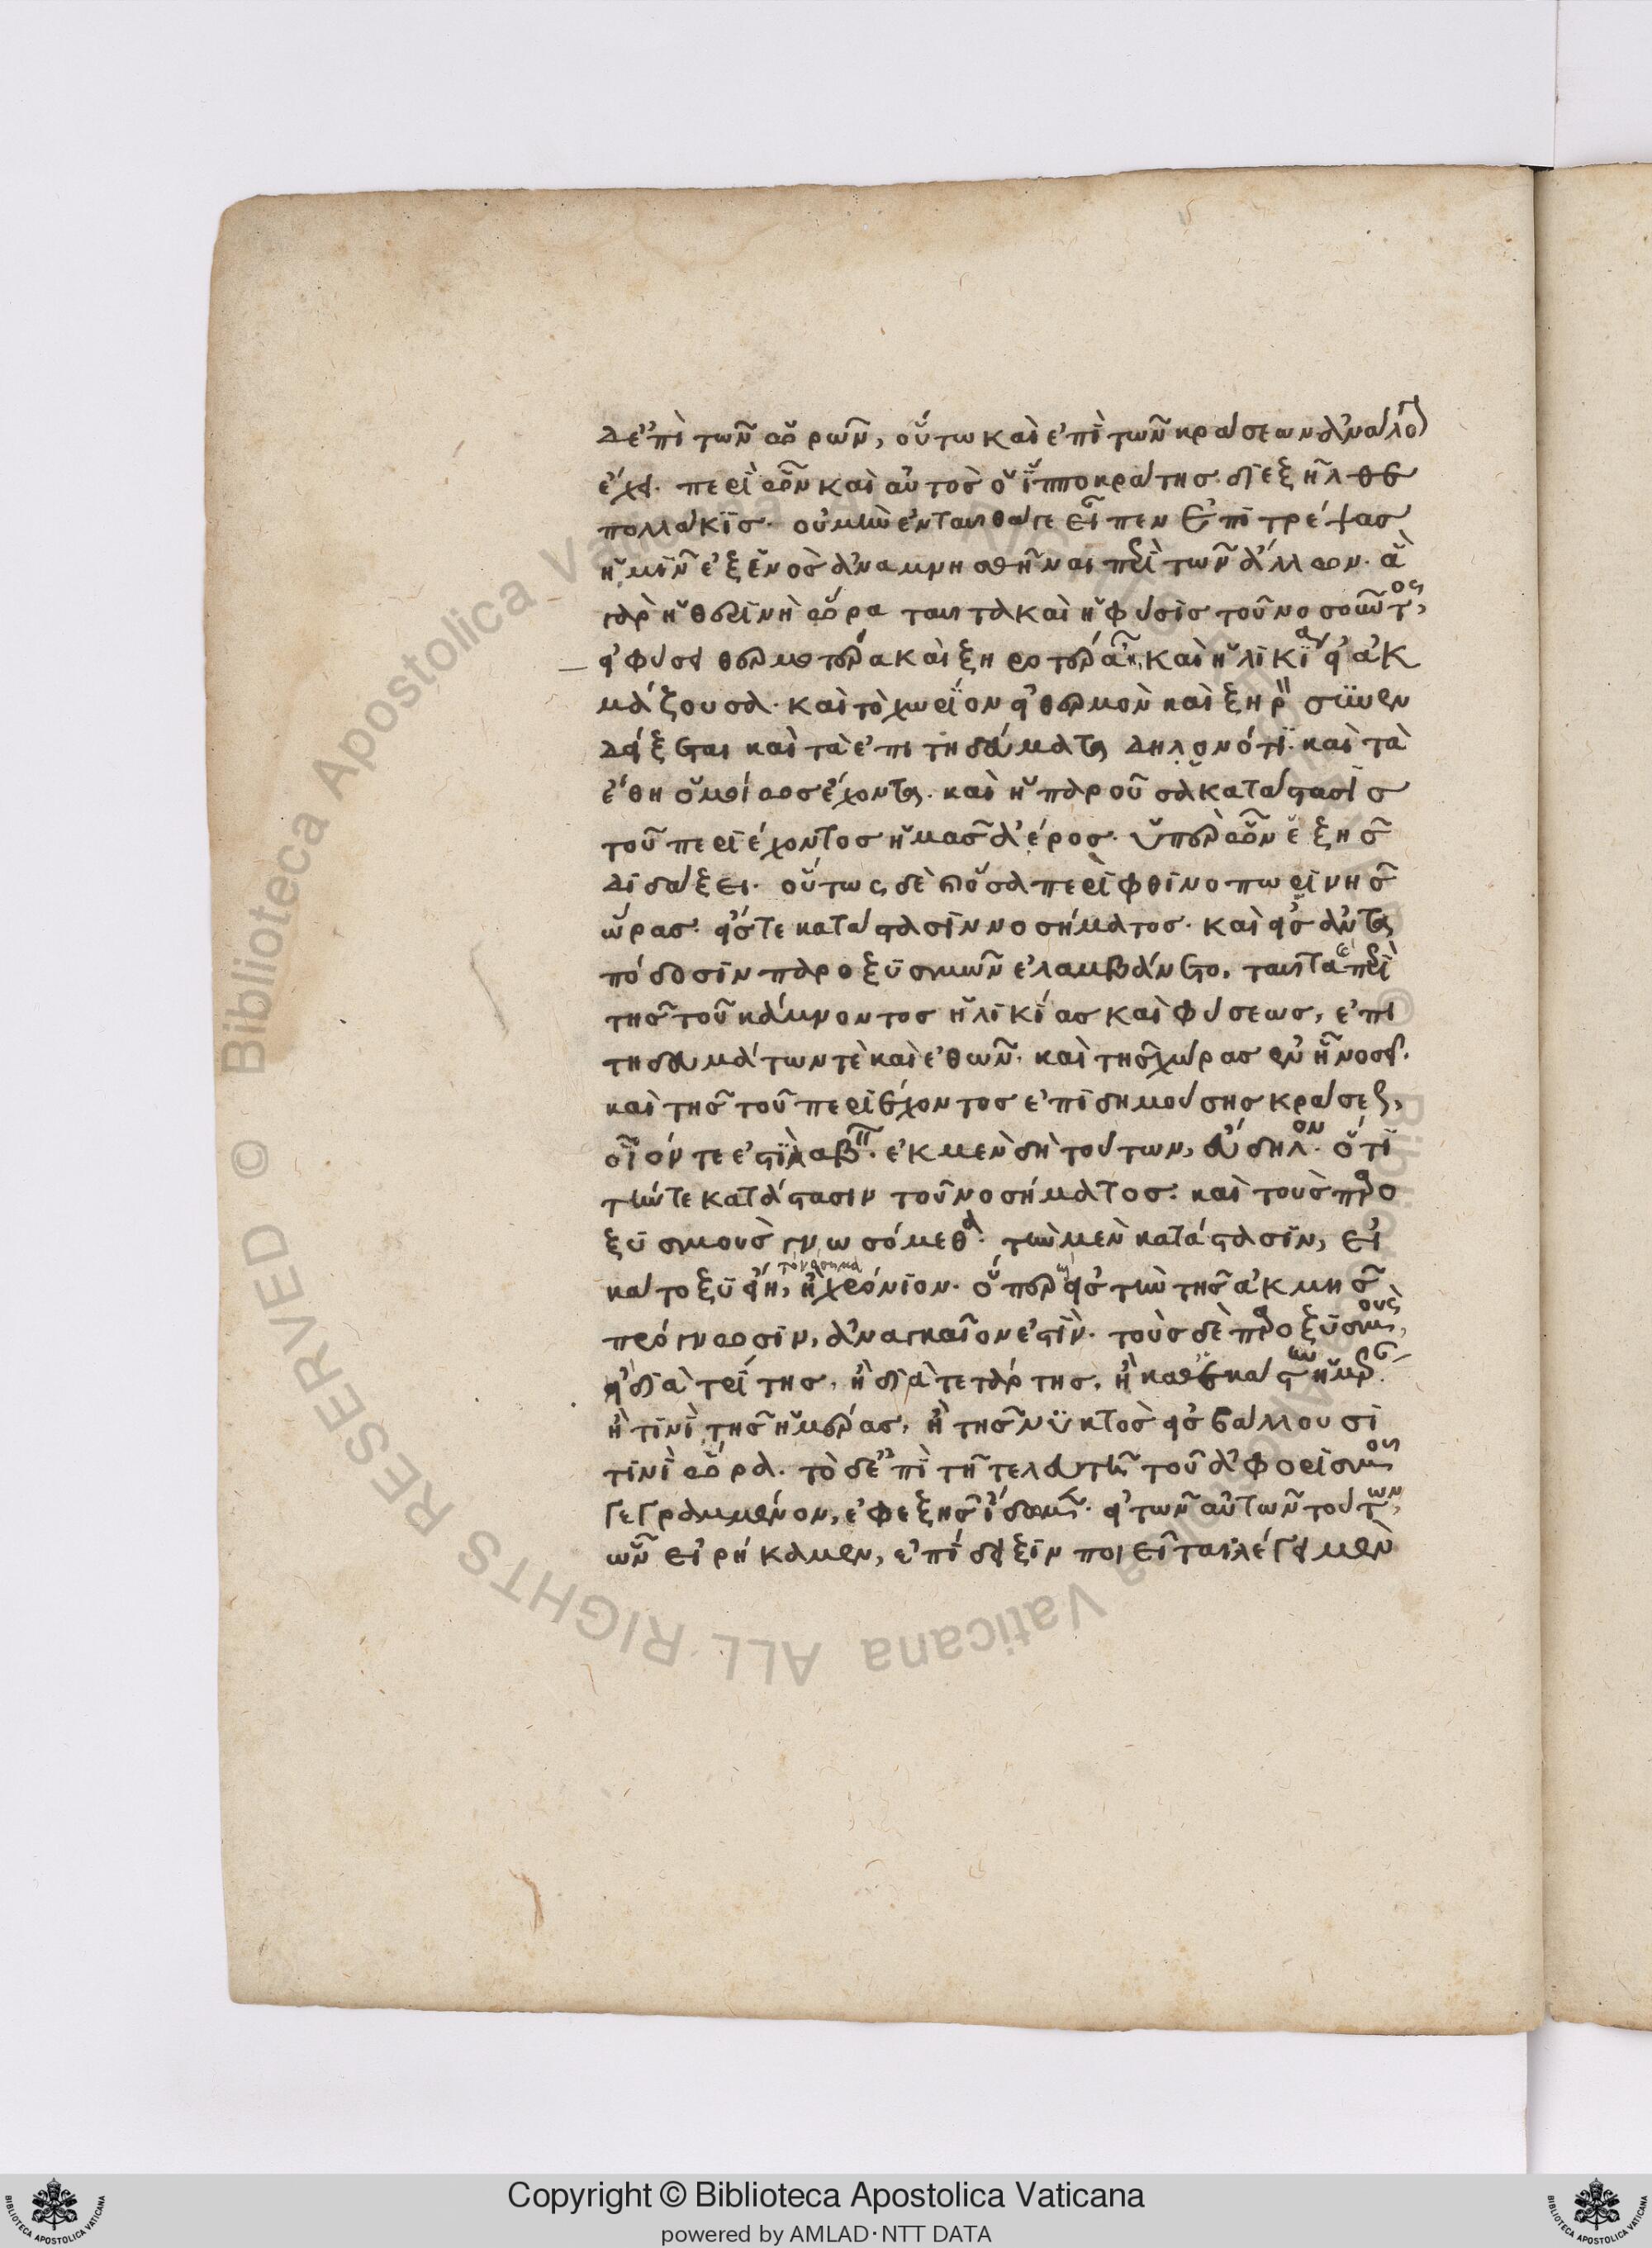 δ' ἐπὶ τῶν ὡρῶν, οὕτω καὶ ἐπὶ τῶν κράσεων ἀνάλογ
ἔχει. περὶ ὧν καὶ αὐτὸς ὁ ἱπποκράτης διεξῆλθε
πολλάκις. οὐ μὴν ἐνταῦθά γε εἶπεν ἐπιτρέψας
ἡμῖν ἐξ ἑνὸς ἀναμνησθῆναι περὶ τῶν ἄλλων. ἃ
γὰρ ἡ θερινὴ ὥρα ταῦτα καὶ ἡ φύσις τοῦ νοσοῦντος,
ἡ φύσει θερμοτέρα καὶ ξηροτέρα καὶ ἡλικία ἡ ἀκ
μάζουσα. καὶ τὸ χωρίον εἰ θερμὸν καὶ ξηρὸν συνεν
δείξεται καὶ τὰ ἐπιτηδεύματα δηλονότι. καὶ τὰ
ἔθη ὁμοίως ἔχοντα. καὶ ἡ παροῦσα κατάστασις
τοῦ περιέχοντος ἡμᾶς ἀέρος. ὑπὲρ ὧν ἑξῆς
διδάξει. οὕτως δὲ περὶ φθινοπωρινῆς
ὥρας εἴς τε κατάστασιν νοσήματος. καὶ εἰς ἀντα
πόδοσιν παροξυσμῶν ἐλαμβάνετο, ταῦτα περὶ
τῆς τοῦ κάμνοντος ἡλικίας καὶ φύσεως, ἐπι
τηδευμάτων τὲ καὶ ἐθῶν. καὶ τῆς χώρας ἐν ᾗ νοσεῖ.
καὶ τῆς τοῦ περιέχοντος ἐπιδημούσης κράσεως,
οἷόν τε ἐστὶ λαβεῖν. ἐκ μὲν δὴ τούτων, εὔδηλον ὅτι
τήν τε κατάστασιν τοῦ νοσήματος. καὶ τοὺς παρο
ξυσμοὺς γνωσόμεθα. τὴν μὲν κατάστασιν, εἰ
κάτοξυ εἴη, τὸ νόσημα ἢ χρόνιον. ὅπερ εἰς τὴν τῆς ἀκμῆς
πρόγνωσιν, ἀναγκαῖον ἐστίν. τοὺς δὲ παροξυσμοὺς,
εἰ διὰ τρίτης, ἢ διὰ τετάρτης, ἢ καθ' ἑκάστην ἡμέραν
ἤ τινι τῆς ἡμέρας, ἢ τῆς νυκτὸς εἰσβάλλουσί
τινι ὥρα. τὸ δ' ἐπὶ τῇ τελευτῇ τοῦ ἀφορισμοῦ
γεγραμμένον, ἐφεξῆς ἴδωμεν. εἰ τῶν αὐτῶν τούτων,
ὧν εἰρήκαμεν, ἐπίδειξιν ποιεῖται λέγει μὲν